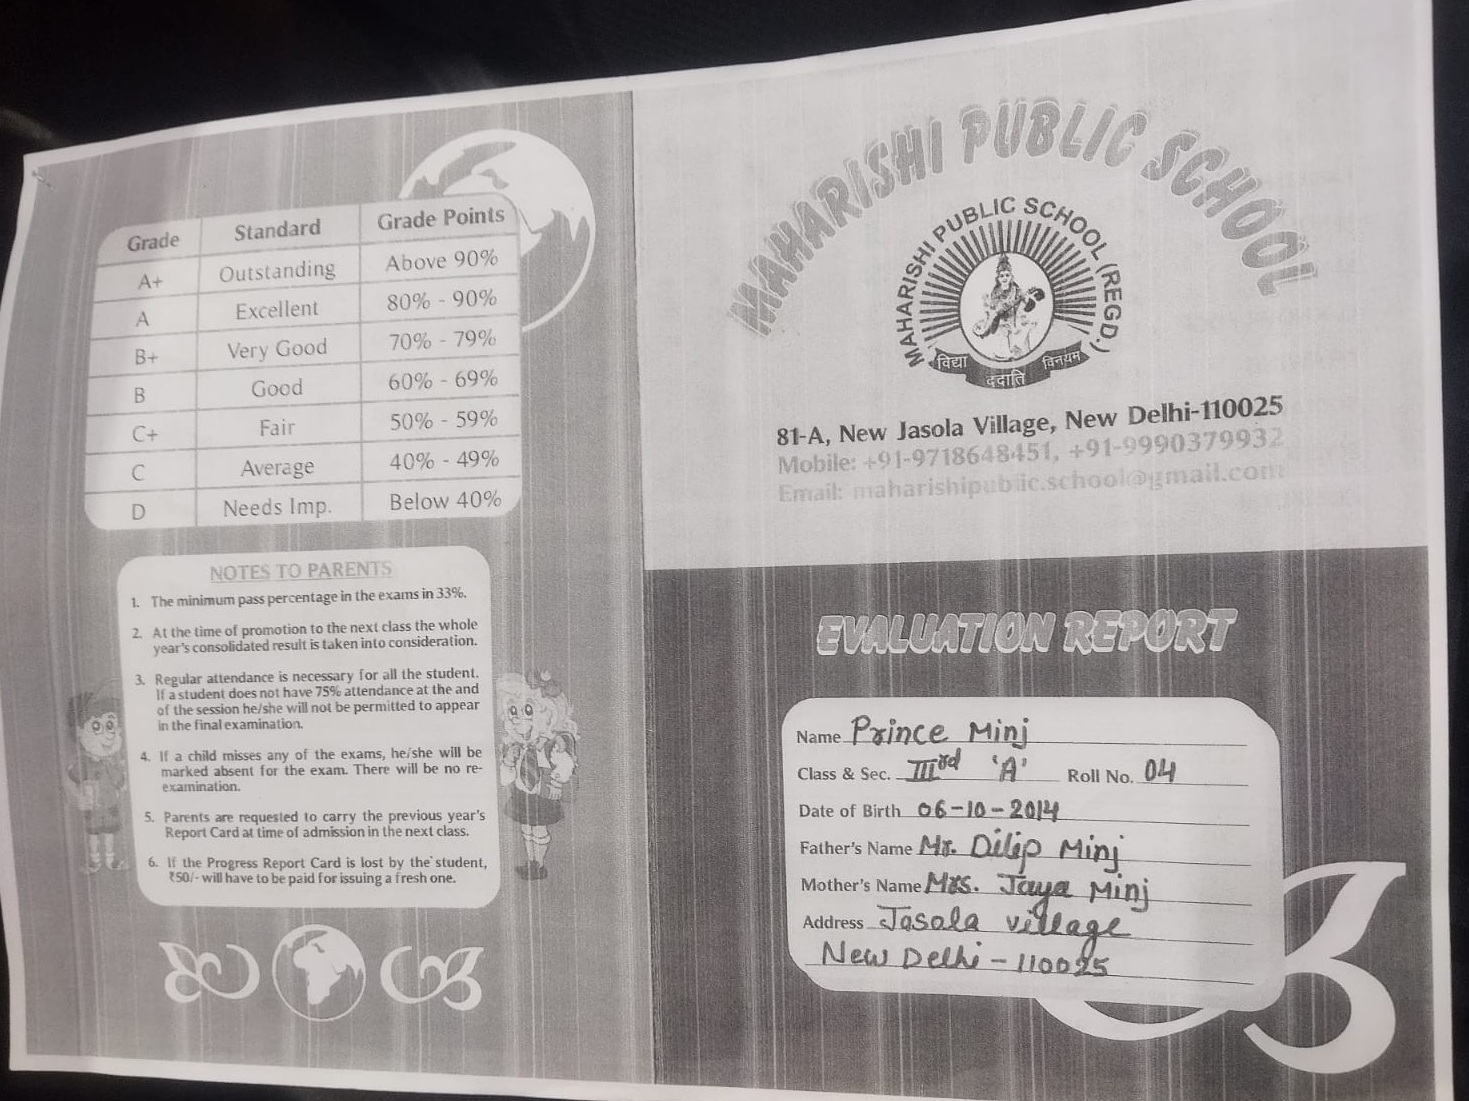 Grade Standard Grade Points
A+ Outstanding Above 90%
A Excellent 80% - 90%
B+ Very Good 70% - 79%
B Good 60% - 69%
C+ Fair 50% - 59%
C Average 40% - 49%
D Needs Imp. Below 40%
NOTES TO PARENTS
1. The minimum pass percentage in the exams in 33%.
2. At the time of promotion to the next class the whole
year's consolidated result is taken into consideration.
3. Regular attendance is necessary for all the student.
If a student does not have 75% attendance at the and
of the session he/she will not be permitted to appear
in the final examination.
4. If a child misses any of the exams, he/she will be
marked absent for the exam. There will be no re-
examination.
5. Parents are requested to carry the previous year's
Report Card at time of admission in the next class.
6. If the Progress Report Card is lost by the student,
₹50/- will have to be paid for issuing a fresh one.
MAHARISHI PUBLIC SCHOOL
MAHARISHI PUBLIC SCHOOL (REGD.)
विद्या ददाति विनयम
81-A, New Jasola Village, New Delhi-110025
Mobile: +91-9718648451, +91-9990379932
Email: maharishipublic.school@gmail.com
EVALUATION REPORT
Name Prince Minj
Class & Sec. IIIrd 'A' Roll No. 04
Date of Birth 06-10-2014
Father's Name Mr. Dilip Minj
Mother's Name Mrs. Jaya Minj
Address Jasola village
New Delhi - 110025